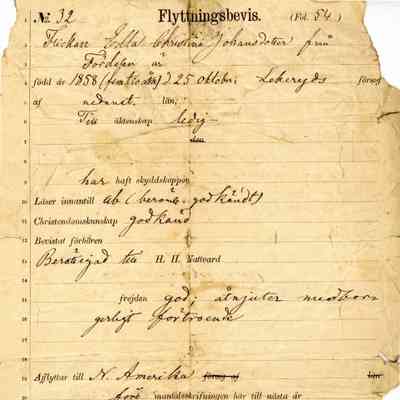 № 32 Flyttningsbevis. (Fol. 54.)
Flickan Christina Johansdotter från
är
född år 1858 (femtio åtta) d. 25 Oktober Lekeryds förs:g
af län;
Till äktenskap ledig
har haft skyddskoppor
Läser innantill ab (beröml. godkändt)
Christendomskunskap godkänd
Bevistat förhören
Berättigad till H. H. Nattvard
frejden god; åtnjuter medbor-
gerligt förtroende
Afflyttar till N. Amerika förs:g af län
före mantalsskrifningen här till nästa år